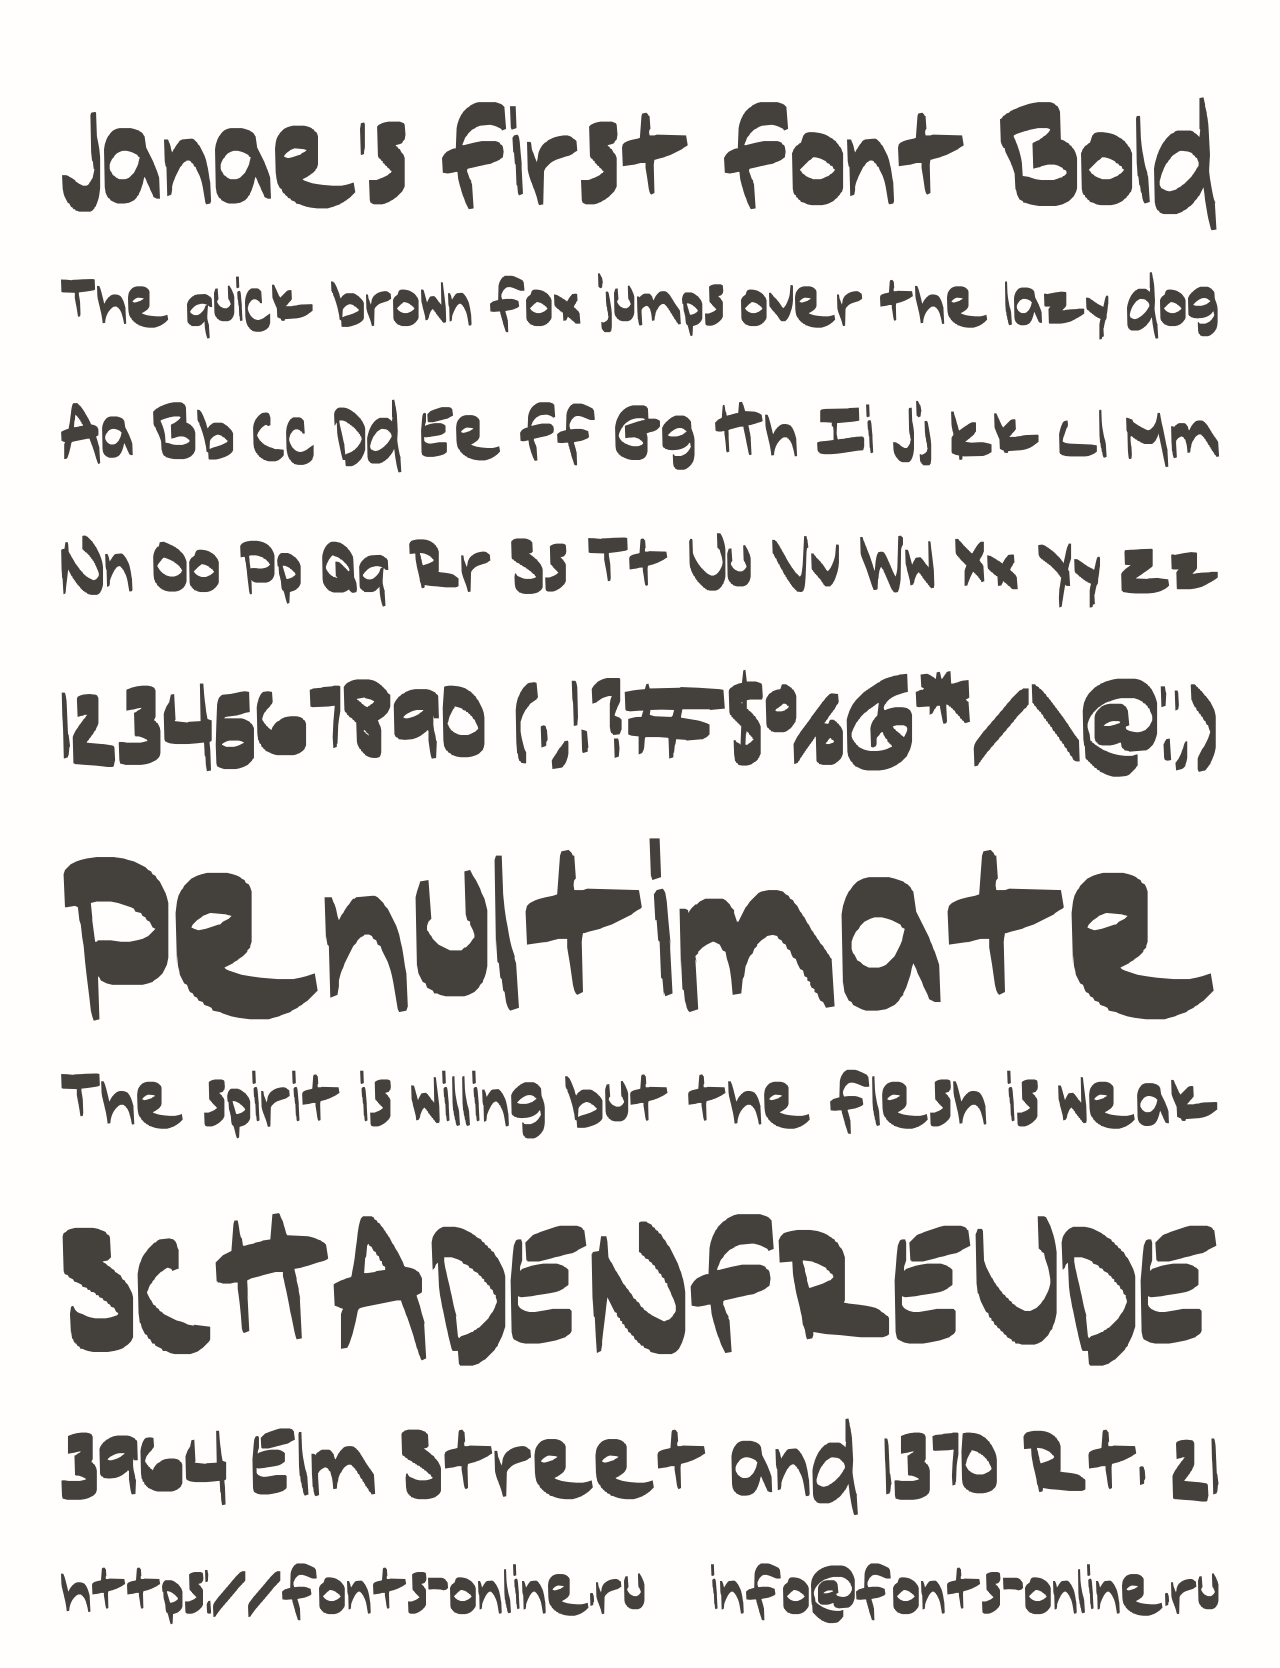 Janae's first font Bold
The quick brown fox jumps over the lazy dog
Aa Bb Cc Dd Ee Ff Gg Hh Ii Jj Kk Ll Mm
Nn Oo Pp Qq Rr Ss Tt Uu Vv Ww Xx Yy Zz
1234567890 (.,!?#$%&*/\@:;)
Penultimate
The spirit is willing but the flesh is weak
SCHADENFREUDE
3964 Elm Street and 1370 Rt. 21
https://fonts-online.ru info@fonts-online.ru